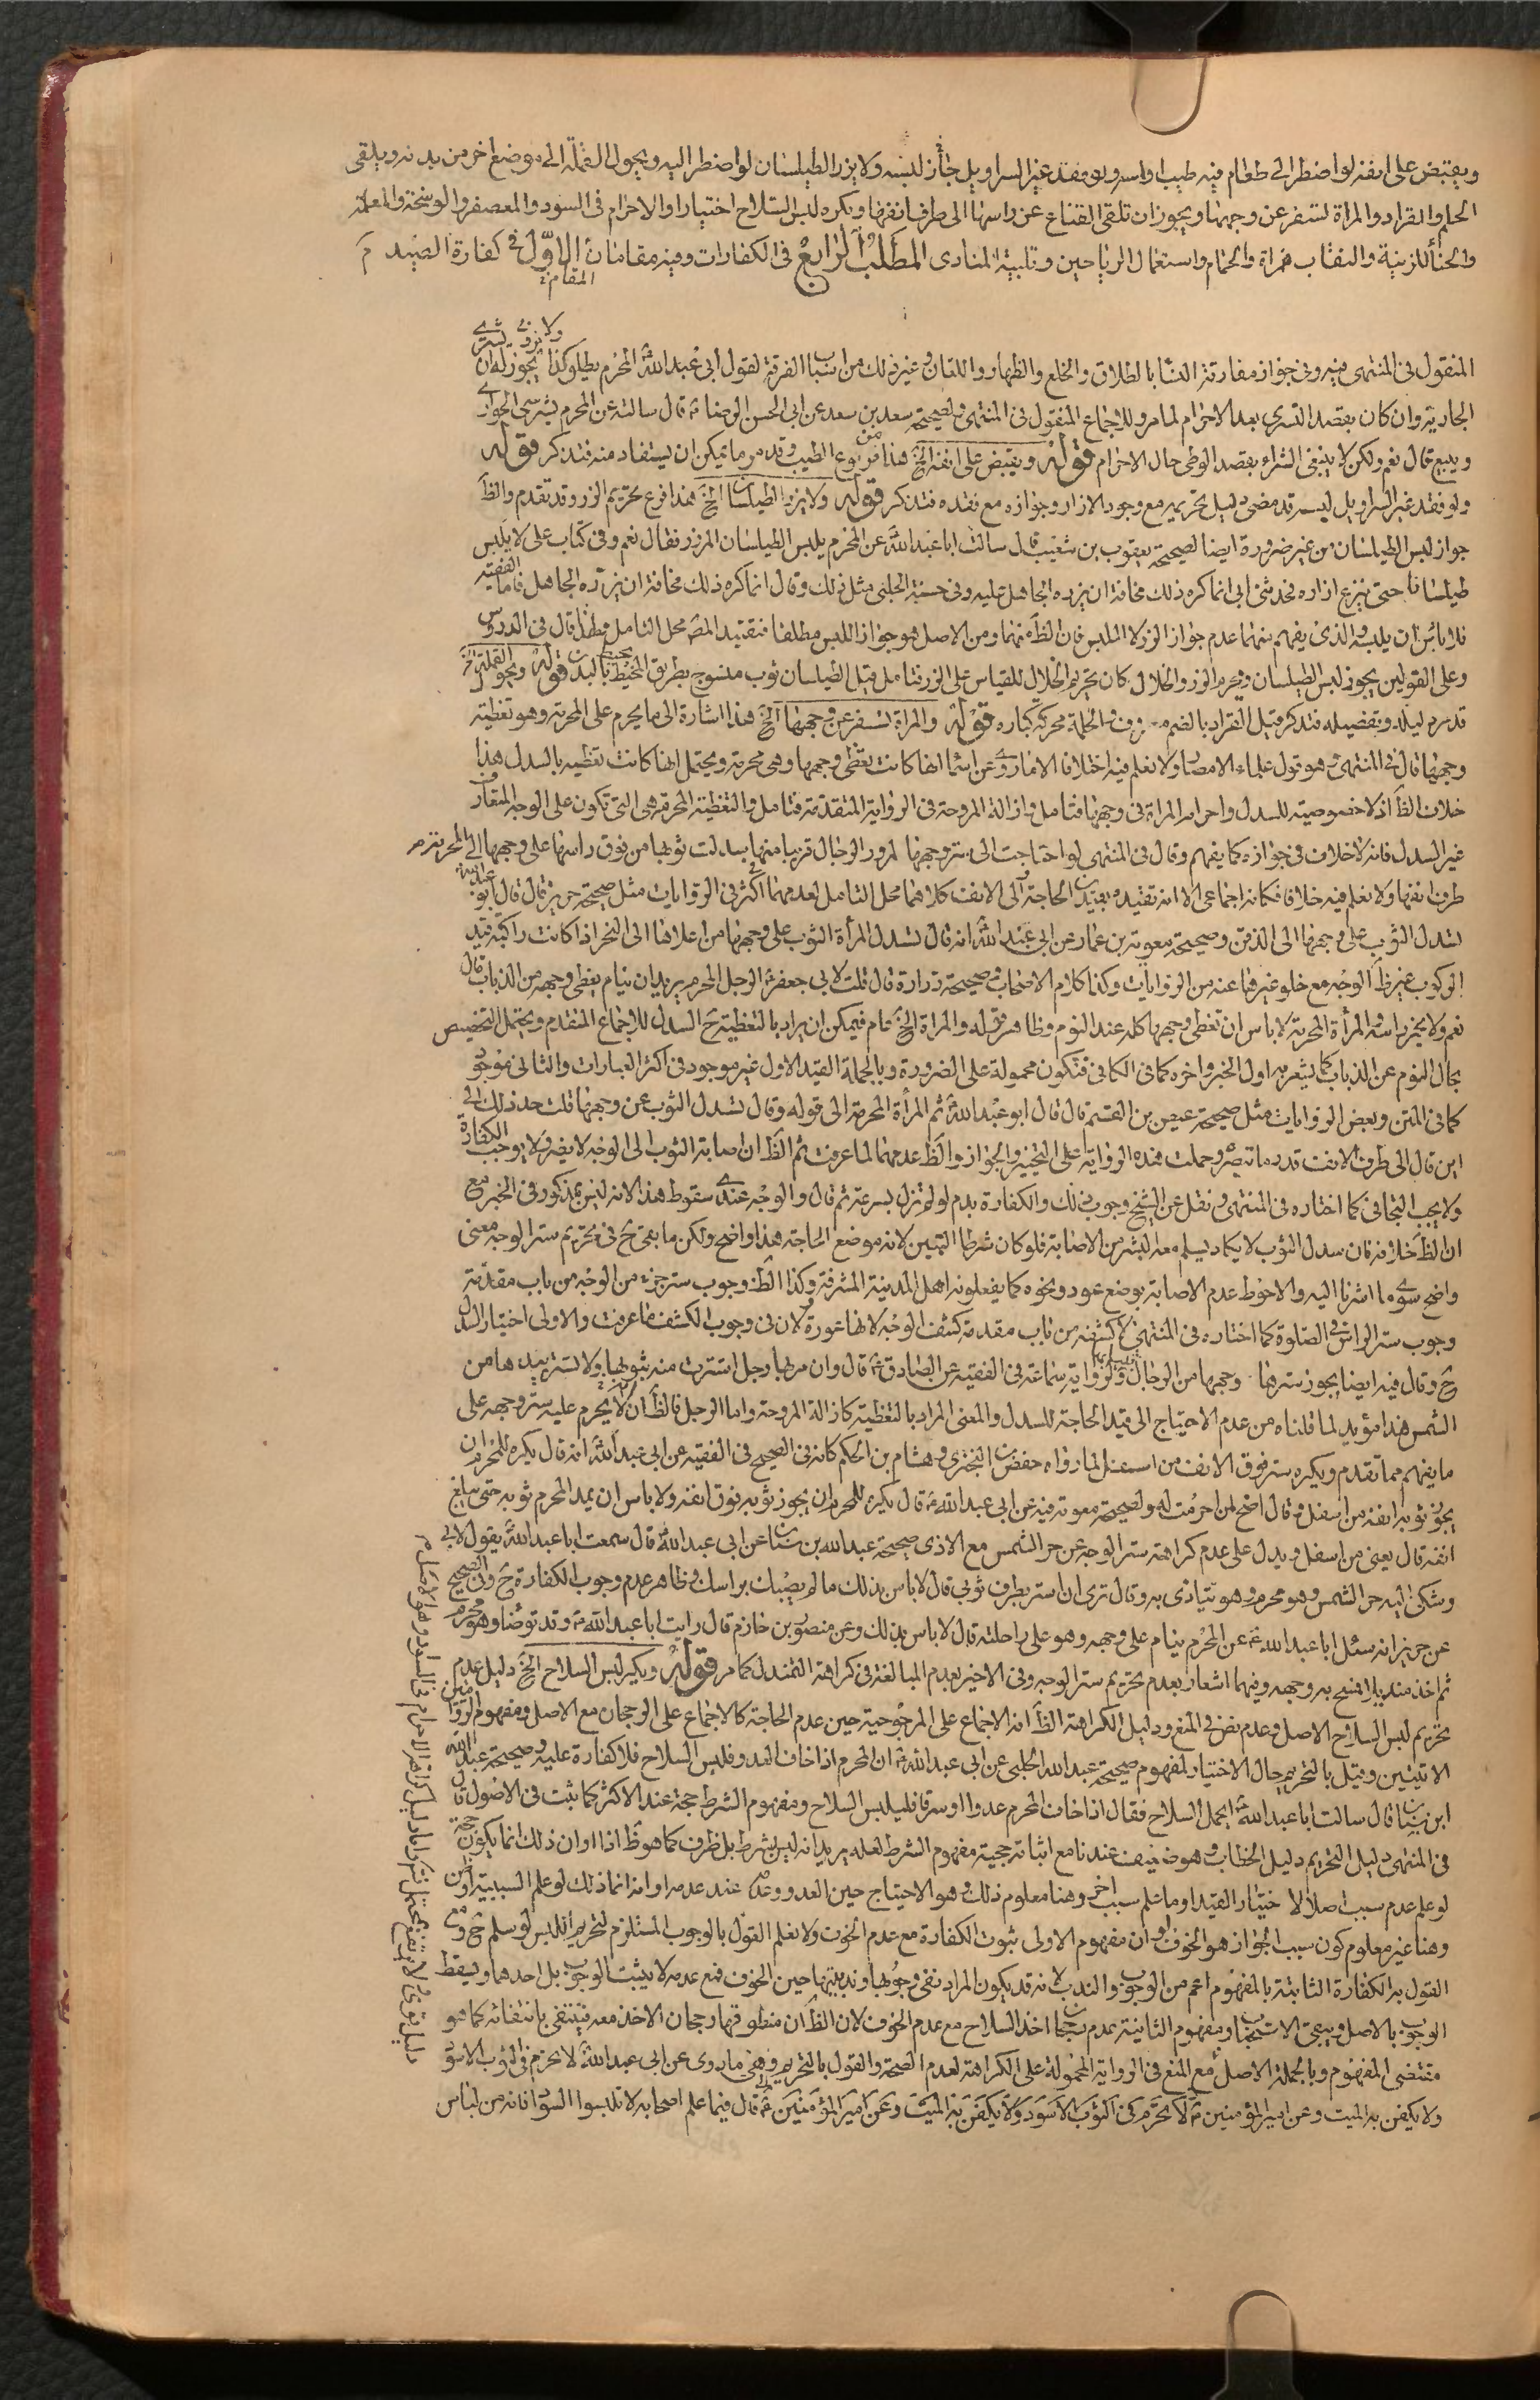 ويقبض على انفه لو اضطر الى طعام فيه طيب او لمسه ولو فقد غير السراويل جاز لبسه ولا يزر الطيلسان لو اضطر اليه ويحول القملة الى موضع اخر من بدنه ويلقى
الحلم والقراد والمراة تسفر عن وجهها ويجوز ان تلقى القناع عن راسها الى طرف انفها ويكره لبس السلاح اختيارا والاحرام فى السود والمعصفر والوسخة والمعلمة
والحنأ للزينة والنقاب للمراة والحمام واستعمال الرياحين وتلبية المنادى المطلب الرابع فى الكفارات وفيه مقامان الاول فى كفارة الصيد
المقام
المنقول فى المنتهى فيه وفى جواز مفارقة النسا بالطلاق والخلع والظهار واللعان وغير ذلك من اسباب الفرقة لقول أبى عبد الله المحرم يطلق وكذا يجوز له ان
ولا يزوج يشترى
الجارية وان كان بقصد التسرى بعد الاحرام لما مر وللاجماع المنقول فى المنتهى ولصحيحة سعد بن سعد عن ابى الحسن الرضا قال سالته عن المحرم يشترى الجوارى
ويبيع قال نعم ولكن لا ينبغى الشراء بقصد الوطى حال الاحرام قوله ويقبض على انفه الخ هذا من فروع الطيب وقد مر ما يمكن ان يستفاد منه فتذكر قوله
ولو فقد غير السراويل لبسه قد مضى دليل تحريمه مع وجود الازار وجوازه مع فقده فتذكر قوله ولا يزر الطيلسان الخ هذا فرع تحريم الزر وقد تقدم والظ
جواز لبس الطيلسان من غير ضرورة ايضا لصحيحة يعقوب بن شعيب قال سالت ابا عبد الله عن المحرم يلبس الطيلسان المزرر فقال نعم وفى كتاب على لا يلبس
طيلسانا حتى ينزع ازاره فحدثنى ابى انما كره ذلك مخافة ان يزره الجاهل عليه وفى حسنة الحلبى مثل ذلك وقال انما كره ذلك مخافة ان يزره الجاهل فاما الفقيه
فلا باس ان يلبسه والذى يفهم منهما عدم جواز الزر لا اللبس فان الظ منهما ومن الاصل هو جواز اللبس مطلقا فتقييد المص محل التامل قال فى الدروس
وعلى القولين يجوز لبس الطيلسان ويحرم الزر والخلال كان تحريم الخلال للقياس على الزر فتامل قيل الطيلسان ثوب منسوج بطريق المخيط بالبدن قوله ويحول القملة الخ
قد مر دليله وتفضيله فتذكر قيل القراد بالضم معروف والحلمة محركة كباره قوله والمراة تسفر عن وجهها الخ هذا اشارة الى ما يحرم على المحرمة وهو تغطية
وجهها قال فى المنتهى وهو قول علماء الامصار ولا نعلم فيه اختلافا الا ما روى عن اسما انها كانت تغطى وجهها وهى محرمة ويحتمل انها كانت تغطيه بالسدل هذا
خلاف الظ اذ لا خصوصية للسدل واحرام المراة فى وجهها فتامل وازالة المروحة فى الرواية المتقدمة فتامل والتغطية المحرمة هى التى تكون على الوجه المتعارف
غير السدل فانه لا خلاف فى جوازه كما يفهم وقال فى المنتهى لو احتاجت الى ستر وجهها لمرور الرجال قريبا منها سدلت ثوبها من فوق راسها على وجهها الى
طرف انفها ولا نعلم فيه خلافا فكانه اجماعى الا انه تقييده بقيدين الحاجة والى الانف كلاهما محل التامل لعدمهما فى اكثر الروايات مثل صحيحة حريز قال قال ابو عبد الله المحرمة
تسدل الثوب على وجهها الى الذقن وصحيحة معوية بن عمار عن ابى عبد الله انه قال تسدل المرأة الثوب على وجهها من اعلاها الى النحر اذا كانت راكبة قيد
الركوب غير ظ الوجه مع خلو غيرها عنه من الروايات وكذا كلام الاصحاب وصحيحة زرارة قال قلت لابى جعفر الرجل المحرم يريد ان ينام يغطى وجهه من الذباب قال
نعم ولا يخمر راسه والمرأة المحرمة لا باس ان تغطى وجهها كله عند النوم وظاهر قوله والمراة الخ عام فيمكن ان يراد بالتغطية ح السدل للاجماع المتقدم ويحتمل التخصيص
بحال النوم عن الذباب كما يشعر به اول الخبر واخره كما فى الكافى فتكون محمولة على الضرورة وبالجملة القيد الاول غير موجود فى اكثر العبارات والثانى موجود
كما فى المتن وبعض الروايات مثل صحيحة عيص بن القسم قال قال ابو عبد الله ثم المرأة المحرمة الى قوله وقال تسدل الثوب عن وجهها قلت حد ذلك الى
اين قال الى طرف الانف قدر ما تبصر وحملت هذه الرواية على التخيير والجواز والظ عدمهما لما عرفت ثم الظ ان اصابة الثوب الى الوجه لا يضر ولا يوجب الكفارة
ولا يجب التجافى كما اختاره فى المنتهى ونقل عن الشيخ وجوب ذلك والكفارة بدم لو لم تزل بسرعة ثم قال والوجه عندى سقوط هذا لانه ليس بمذكور فى الخبر مع
ان الظ خلافه فان سدل الثوب لا يكاد يسلم معه البشرة من الاصابة فلو كان شرطا لتبين لانه موضع الحاجة هذا واضح ولكن ما بقى ح فى تحريم ستر الوجه معنى
واضح سوى ما اشرنا اليه والاحوط عدم الاصابة بوضع عود ونحوه كما يفعلونه اهل المدينة المشرفة وكذا الظ وجوب ستر جزء من الوجه من باب مقدمة
وجوب ستر الراس فى الصلوة كما اختاره فى المنتهى لا كشفه من باب مقدمة كشف الوجه لانها عورة ولان فى وجوب الكشف ما عرفت والاولى اختيار السدل
ح وقال فيه ايضا يجوز سترها وجهها من الرجال ولرواية سماعة فى الفقيه عن الصادق قال وان مر بها رجل استترت منه بثوبها ولا تستتر بيدها من
الشمس هذا مؤيد لما قلناه من عدم الاحتياج الى قيد الحاجة للسدل والمعنى المراد بالتغطية كازالة المروحة واما الرجل فالظ ان لا يحرم عليه ستر وجهه على
ما يفهم مما تقدم ويكره ستر فوق الانف من اسفل لما رواه حفص بن البخترى وهشام بن الحكم كانه فى الصحيح فى الفقيه عن ابى عبد الله انه قال يكره للمحرم ان
يجوز ثوبه انفه من اسفل وقال اضح لمن احرمت له ولصحيحة معوية فيه عن ابى عبد الله قال يكره للمحرم ان يجوز ثوبه فوق انفه ولا باس ان يمد المحرم ثوبه حتى يبلغ
انفه قال يعنى من اسفل ويدل على عدم كراهة ستر الوجه عن حر الشمس مع الاذى صحيحة عبد الله بن سنان عن ابى عبد الله قال سمعت ابا عبد الله يقول لابى
وشكى اليه حر الشمس وهو محرم وهو يتاذى به وقال ترى ان استر بطرف ثوبى قال لا باس بذلك ما لم يصبك براسك وظاهر عدم وجوب الكفارة ح وفى الصحيح
عن حريز انه سئل ابا عبد الله عن المحرم ينام على وجهه وهو على راحلته قال لا باس بذلك وعن منصور بن حازم قال رايت ابا عبد الله وقد توضا وهو محرم
ثم اخذ منديلا فمسح به وجهه وفيهما اشعار بعدم تحريم ستر الوجه وفى الاخير بعدم المبالغة فى كراهة التمندل كما مر قوله ويكره لبس السلاح الخ دليل عدم
تحريم لبس السلاح الاصل وعدم نص فى المنع ودليل الكراهة الظ انه الاجماع على المرجوحية حين عدم الحاجة كالاجماع على الرجحان مع الاصل ومفهوم الروايتين
الاتيتين وقيل بالتحريم حال الاختيار لمفهوم صحيحة عبد الله الحلبى عن ابى عبد الله ان المحرم اذا خاف العدو فلبس السلاح فلا كفارة عليه وصحيحة عبد الله
ابن سنان قال سالت ابا عبد الله ايحمل السلاح فقال اذا خاف المحرم عدوا او سرقا فليلبس السلاح ومفهوم الشرط حجة عند الاكثر كما ثبت فى الاصول قال
فى المنتهى دليل التحريم دليل الخطاب وهو ضعيف عندنا مع اثباته حجية مفهوم الشرط لعله يريد انه ليس بشرط بل ظرف كما هو ظ اذا او ان ذلك انما يكون حجة
لو علم عدم سبب اصلا لاختيار القيد او ما علم سبب اخر وهنا معلوم ذلك وهو الاحتياج حين العدو وعدمه عند عدمه او انه انما ذلك لو علم السببية
وهنا غير معلوم كون سبب الجواز هو الخوف وان مفهوم الاولى ثبوت الكفارة مع عدم الخوف ولا نعلم القول بالوجوب المستلزم لتحريم اللبس لو سلم ح ومع
القول به الكفارة الثابتة بالمفهوم اعم من الوجوب والندب لانه قد يكون المراد نفى وجوبها وندبيتها حين الخوف فمع عدمه لا يثبت الوجوب بل احدهما ويسقط
الوجوب بالاصل ويبقى الاستحباب ومفهوم الثانية عدم رجحان اخذ السلاح مع عدم الخوف لان الظ ان منطوقها رجحان الاخذ معه فينتفى بانتفائه كما هو
مقتضى المفهوم وبالجملة الاصل مع المنع فى الرواية المحمولة على الكراهة لعدم الصحة والقول بالتحريم وهى ما روى عن ابى عبد الله لا يحرم فى الثوب الاسود
ولا يكفن به الميت وعن امير المؤمنين لا يحرم فى الثوب الاسود ولا يكفن به الميت وعن امير المؤمنين قال فيما علم اصحابه لا تلبسوا السواد فانه من لباس